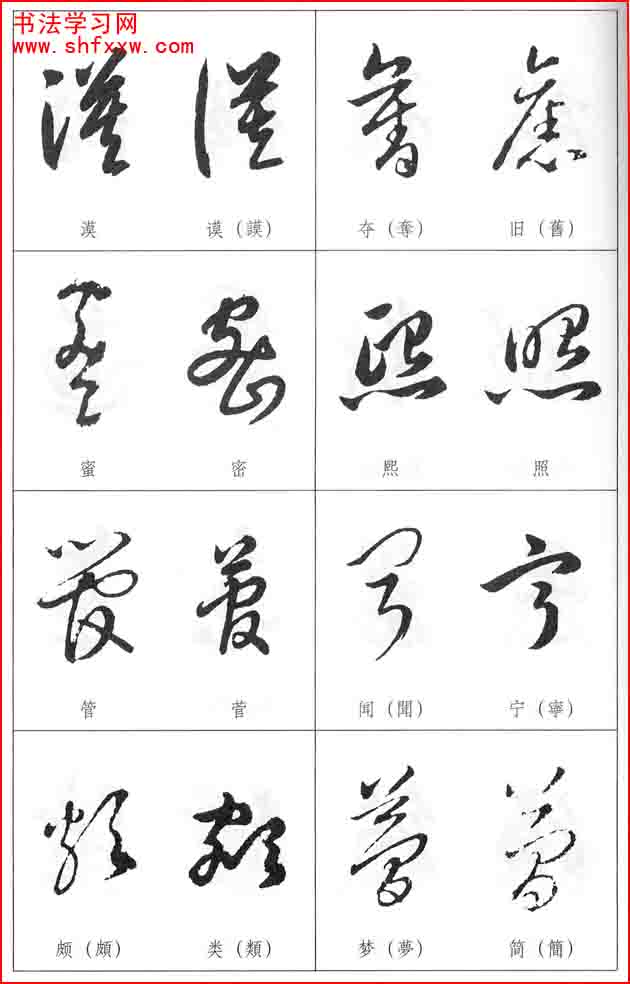 书法学习网
www.shfxxw.com
漠 谟（謨） 夺（奪） 旧（舊）
蜜 密 熙 照
管 菅 闻（聞） 宁（寧）
颇（頗） 类（類） 梦（夢） 简（簡）